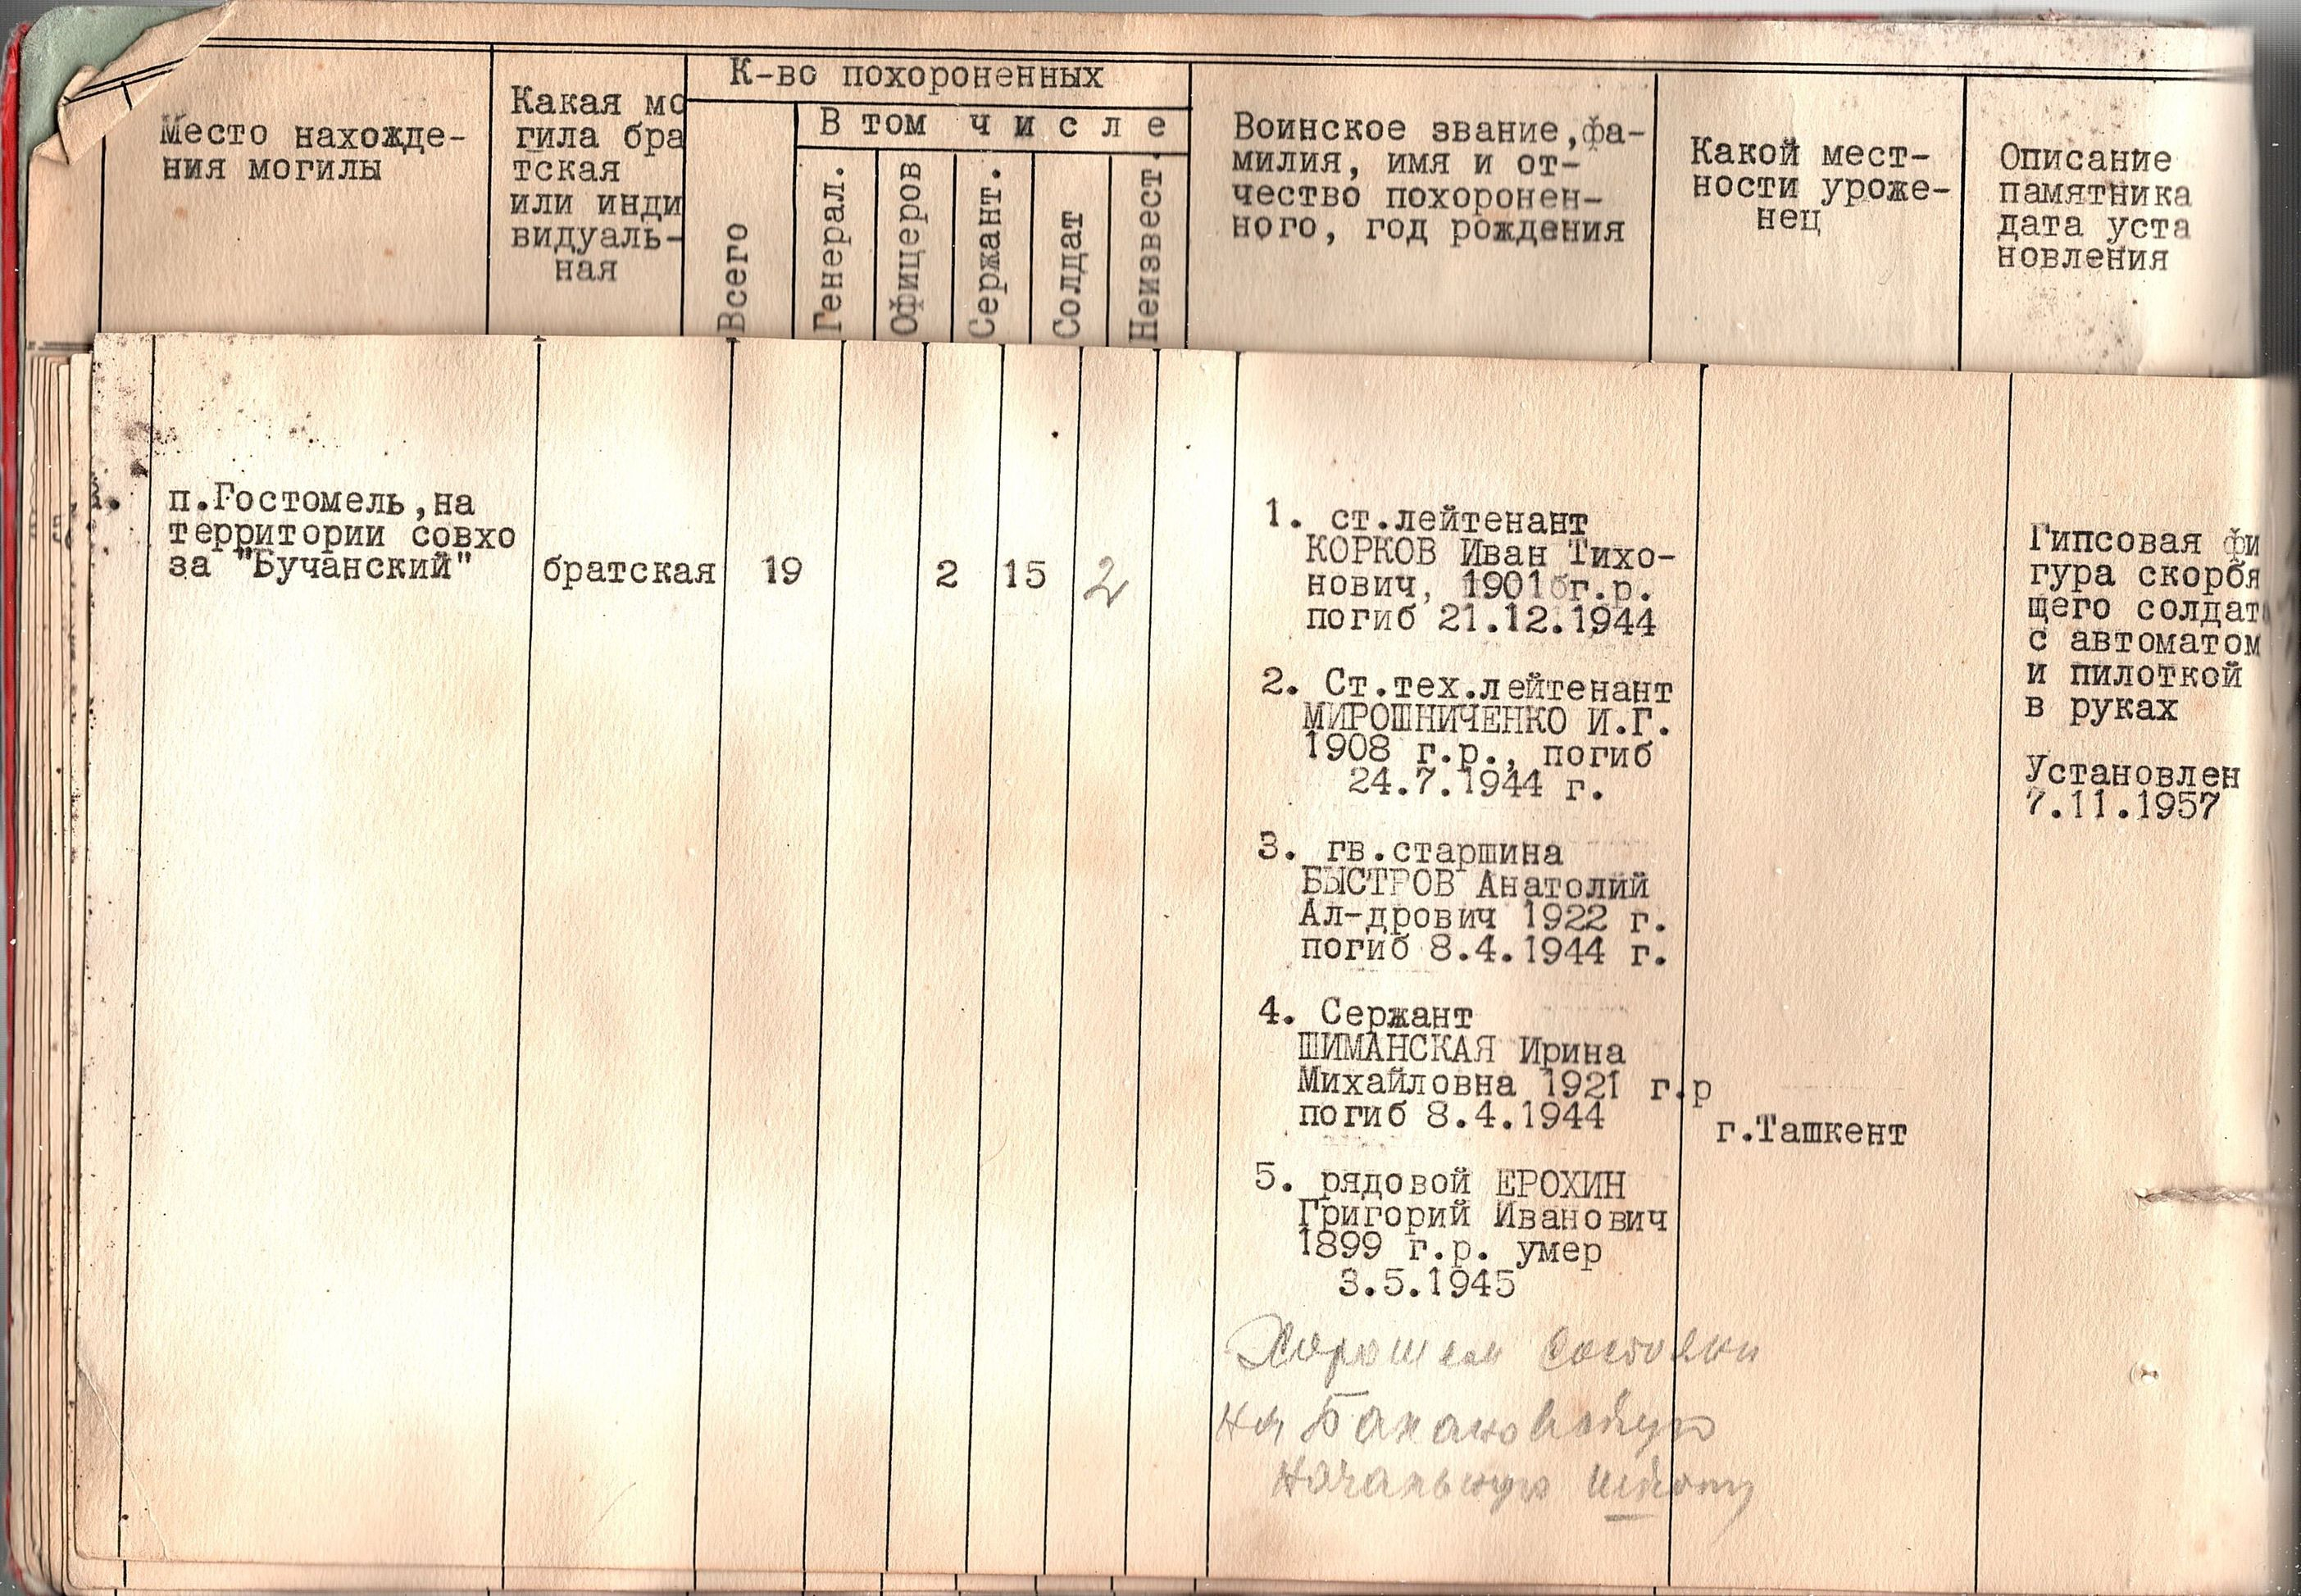 К-во похороненных
Место нахожде-
ния могилы
Какая мо
гила бра
тская
или инди
видуаль-
ная
Всего
В том числе
Генерал.
Офицеров
Сержант.
Солдат
Неизвест.
Воинское звание,фа-
милия, имя и от-
чество похоронен-
ного, год рождения
Какой мест-
ности уроже-
нец
Описание
памятника
дата уста
новления
п.Гостомель,на
территории совхо
за "Бучанский"
братская
19
2
15
2
1. ст.лейтенант
КОРКОВ Иван Тихо-
нович, 1901 г.р.
погиб 21.12.1944
2. Ст.тех.лейтенант
МИРОШНИЧЕНКО И.Г.
1908 г.р., погиб
24.7.1944 г.
3. гв.старшина
БЫСТРОВ Анатолий
Ал-дрович 1922 г.
погиб 8.4.1944 г.
4. Сержант
ШИМАНСКАЯ Ирина
Михайловна 1921 г.р
погиб 8.4.1944
г.Ташкент
5. рядовой ЕРОХИН
Григорий Иванович
1899 г.р. умер
3.5.1945
Гипсовая фи
гура скорбя
щего солдата
с автоматом
и пилоткой
в руках
Установлен
7.11.1957
Хорошем состояни
на
начальную школу